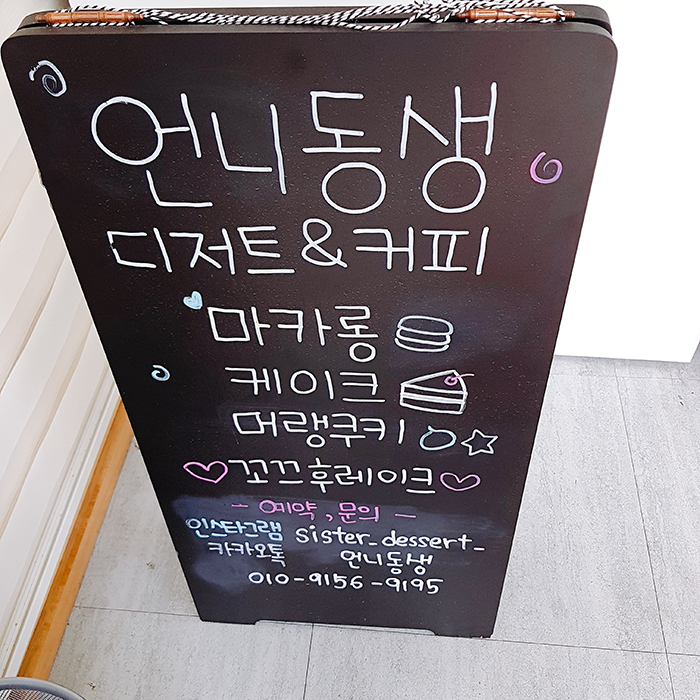 언니동생
디저트&커피
마카롱
케이크
머랭쿠키
꼬끄후레이크
- 예약, 문의 -
인스타그램 sister_dessert_
카카오톡 언니동생
010-9156-9195